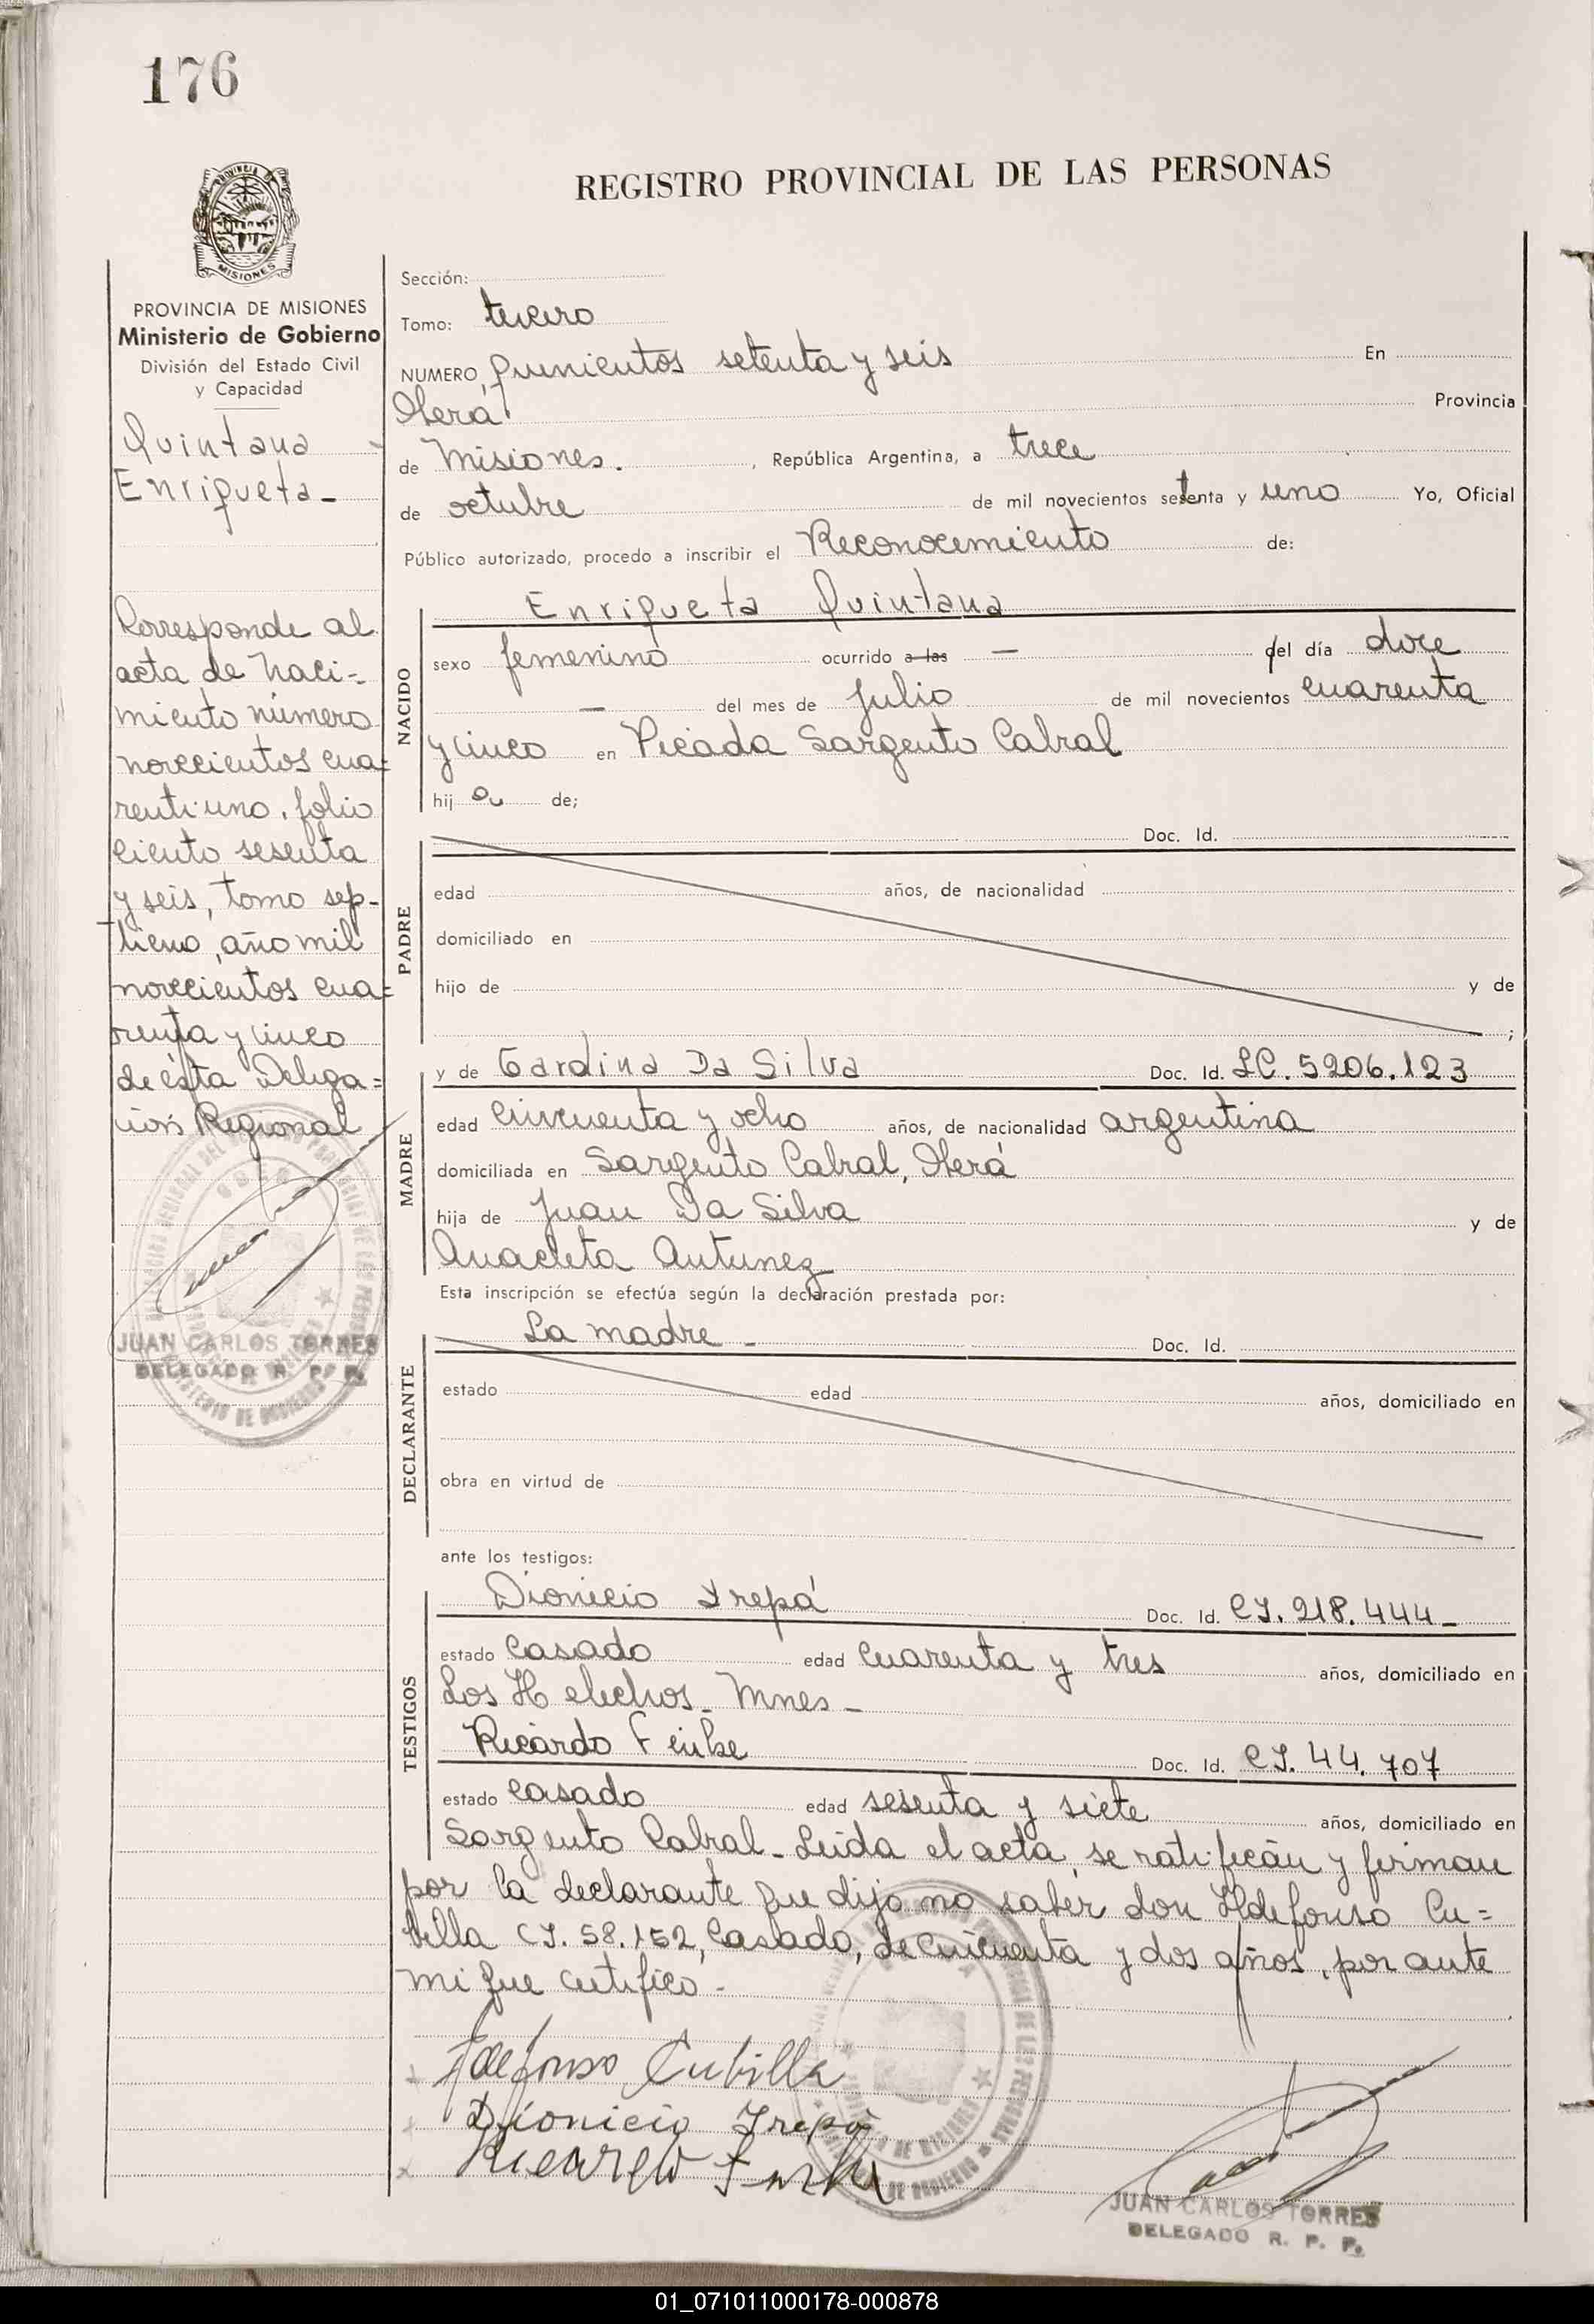 176
REGISTRO PROVINCIAL DE LAS PERSONAS
MISIONES
PROVINCIA DE MISIONES
Ministerio de Gobierno
División del Estado Civil
y Capacidad
Quintana
Enriqueta-
Corresponde al
acta de naci=
miento número
novecientos cua=
renti uno, folio
ciento sesenta
y seis, tomo sep-
timo, año mil
novecientos cua=
renta y cinco
de ésta Delega=
ción Regional
JUAN CARLOS TORRES
DELEGADO R. P. P.
Sección:
Tomo: tercero
NUMERO, quinientos setenta y seis En
Oberá Provincia
de Misiones. , República Argentina, a trece
de octubre de mil novecientos setenta y uno Yo, Oficial
Público autorizado, procedo a inscribir el Reconocimiento de:
NACIDO
Enriqueta Quintana
sexo femenino ocurrido a las — del día doce
— del mes de Julio de mil novecientos cuarenta
y cinco en Picada Sargento Cabral
hij a de;
PADRE
Doc. Id.
edad años, de nacionalidad
domiciliado en
hijo de y de
;
MADRE
y de Gardina Da Silva Doc. Id. LC. 5206.123
edad cincuenta y ocho años, de nacionalidad argentina
domiciliada en Sargento Cabral, Oberá
hija de Juan Da Silva y de
Anacleta Antunez
Esta inscripción se efectúa según la declaración prestada por:
DECLARANTE
La madre - Doc. Id.
estado edad años, domiciliado en
obra en virtud de
ante los testigos:
TESTIGOS
Dionicio Yrepá Doc. Id. CI. 218.444-
estado Casado edad cuarenta y tres años, domiciliado en
Los Helechos- Mnes-
Ricardo Doc. Id. CI. 44.707
estado casado edad sesenta y siete años, domiciliado en
Sargento Cabral- Leida el acta, se ratificán y firman
por la declarante que dijo no saber don Ildefonso Cu=
billa CI. 58.152, Casado, de cincuenta y dos años, por ante
mi que certifico-
Ildefonso Cubilla
Dionicio Yrepá
Ricardo
JUAN CARLOS TORRES
DELEGADO R. P. P.
01_071011000178-000878